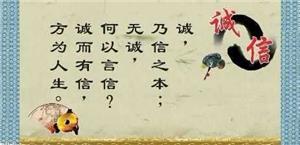 诚信
诚，
乃信之本；
无诚，
何以言信？
诚而有信，
方为人生。